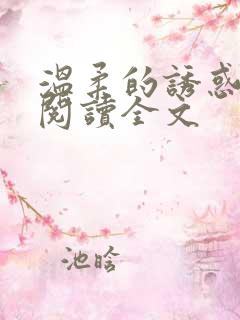 溫柔的誘惑
閱讀全文
池晗